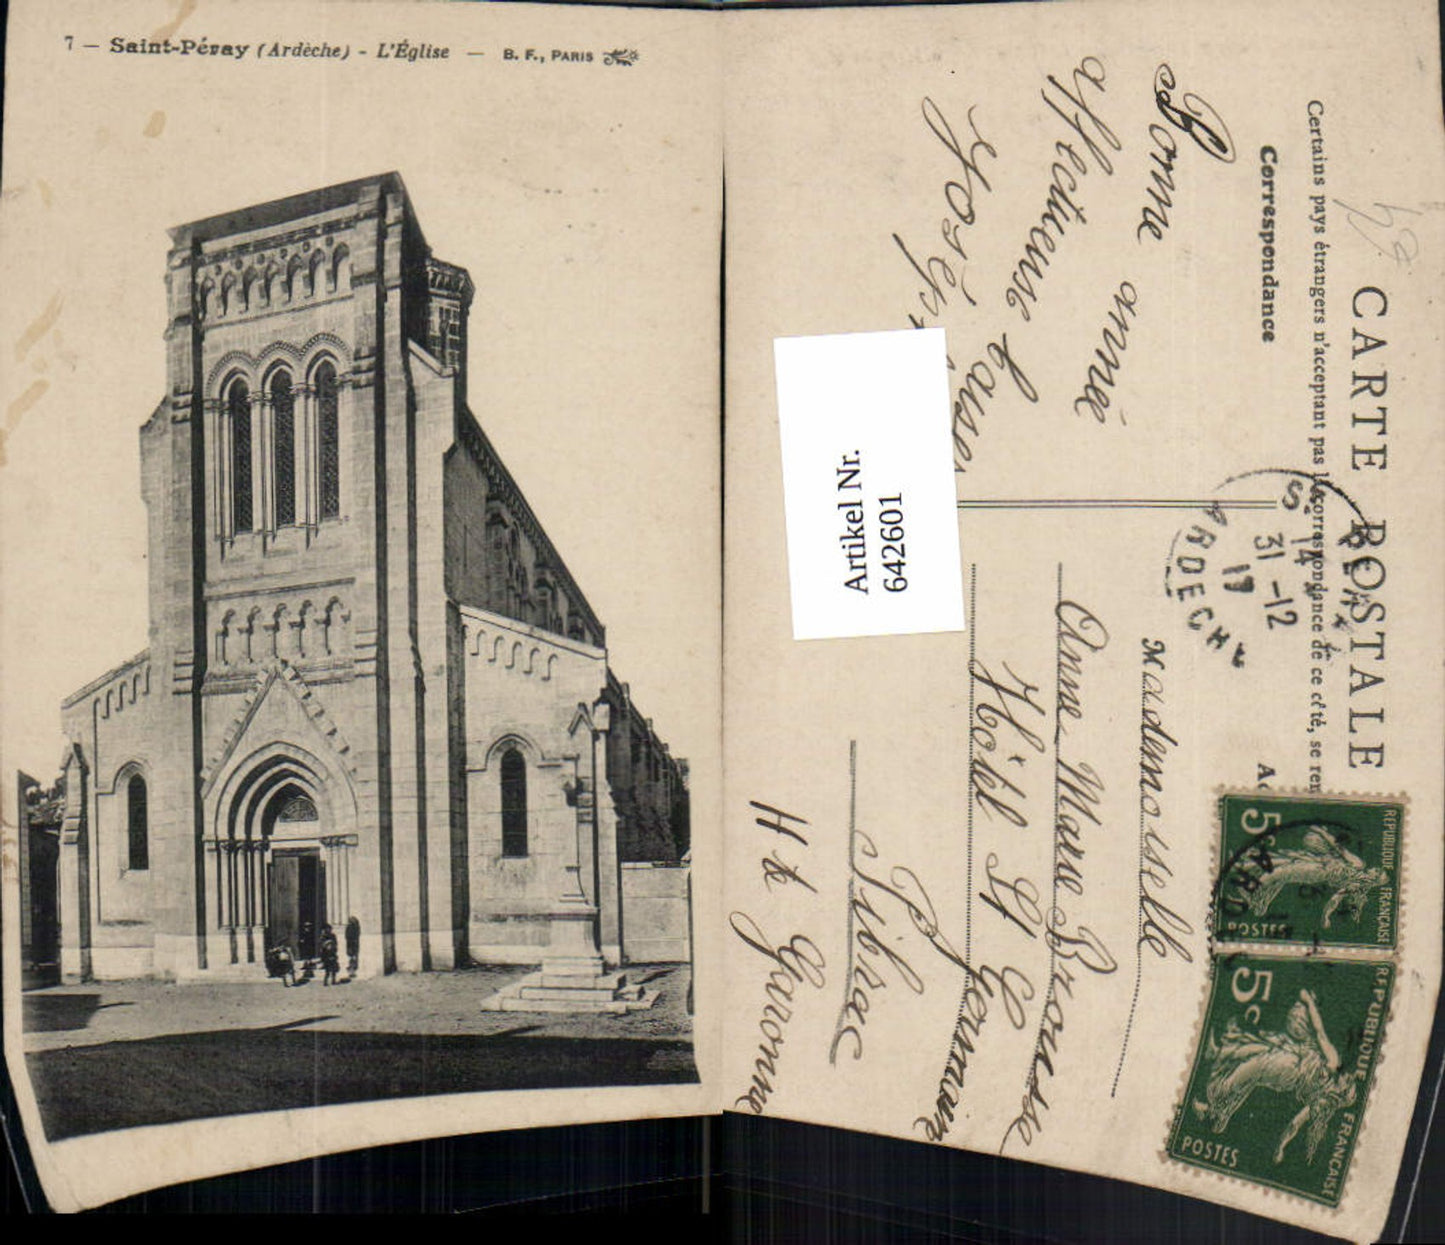 7 — Saint-Péray (Ardèche) - L'Église — B. F., PARIS
CARTE POSTALE
Certains pays étrangers n'acceptant pas la correspondance de ce côté, se ren
Correspondance
Bonne année
Affectueuse baiser
Joseph
Artikel Nr.
642601
S. 14
31 - 12
17
ARDECHE
Mademoiselle
Anne Marie Brousse
Hôtel St Germaine
Pibrac
Hte Garonne
REPUBLIQUE FRANÇAISE
5c
POSTES
REPUBLIQUE FRANÇAISE
5c
POSTES